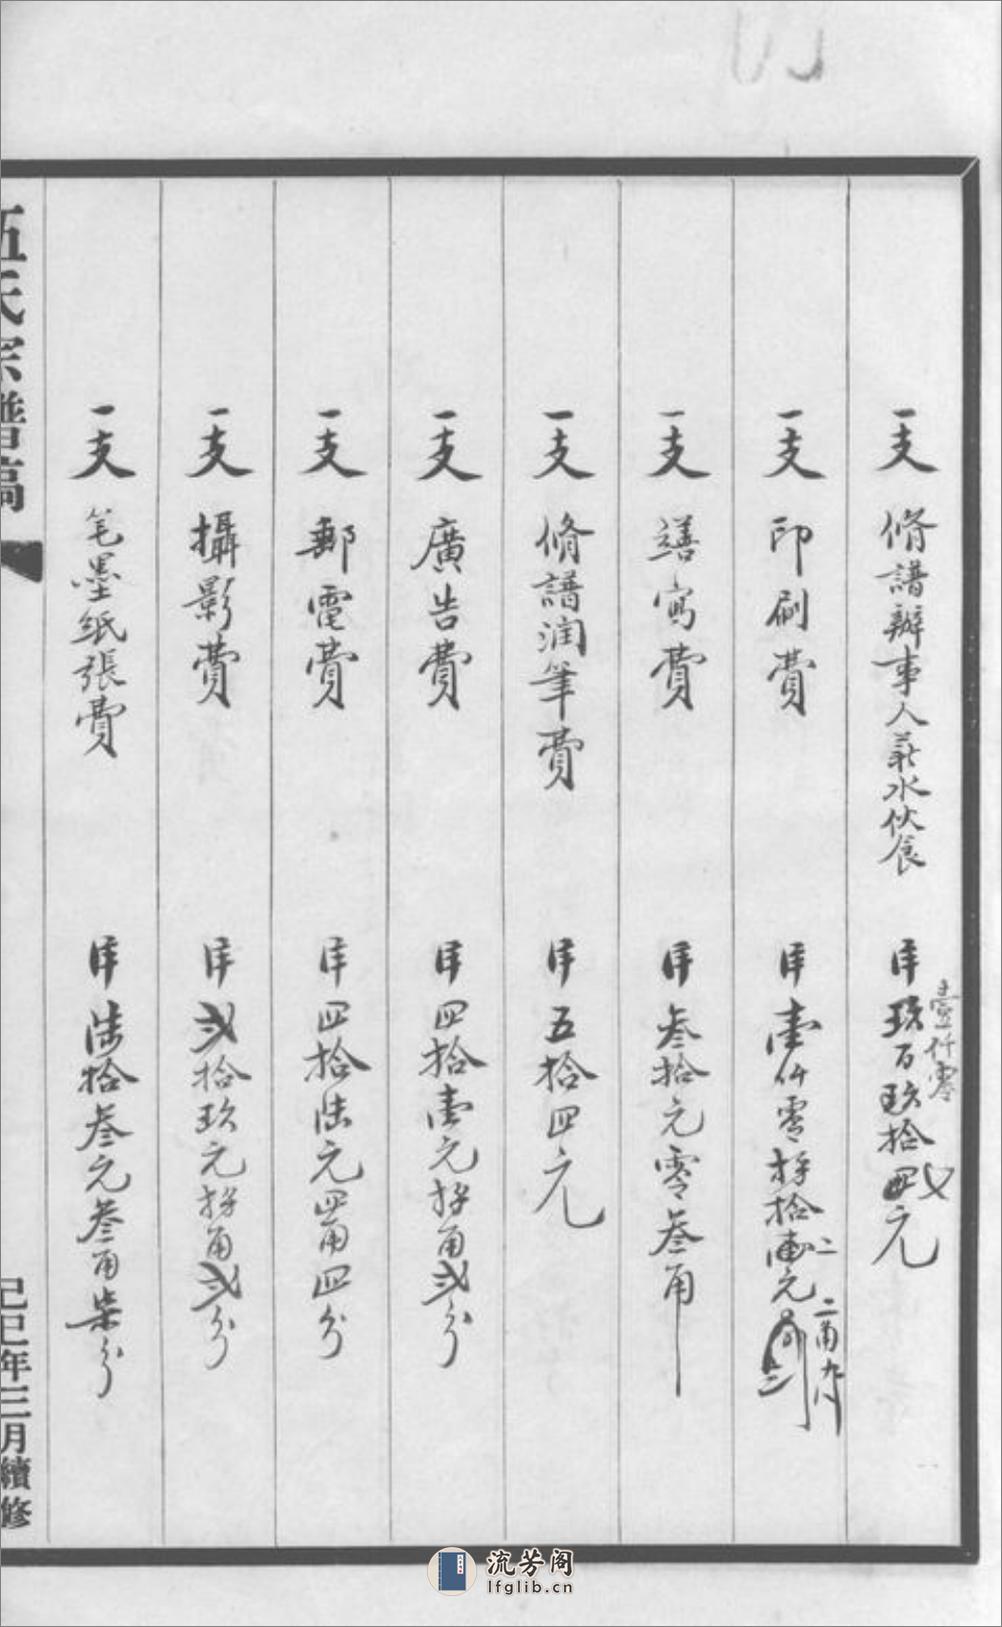 一支 脩譜辦事人薪水伙食 洋玖百玖拾四元
壹仟零
一支 印刷費 洋壹仟零捌拾壹元
二
二角九分
一支 繕寫費 洋叁拾元零叁角
一支 脩譜润筆費 洋五拾四元
一支 廣告費 洋四拾壹元捌角弍分
一支 郵電費 洋四拾陆元四角四分
一支 攝影費 洋弍拾玖元捌角弍分
一支 笔墨紙張費 洋陆拾叁元叁角柒分
伍氏宗譜稿
己巳年三月續修
流芳阁
lfglib.cn